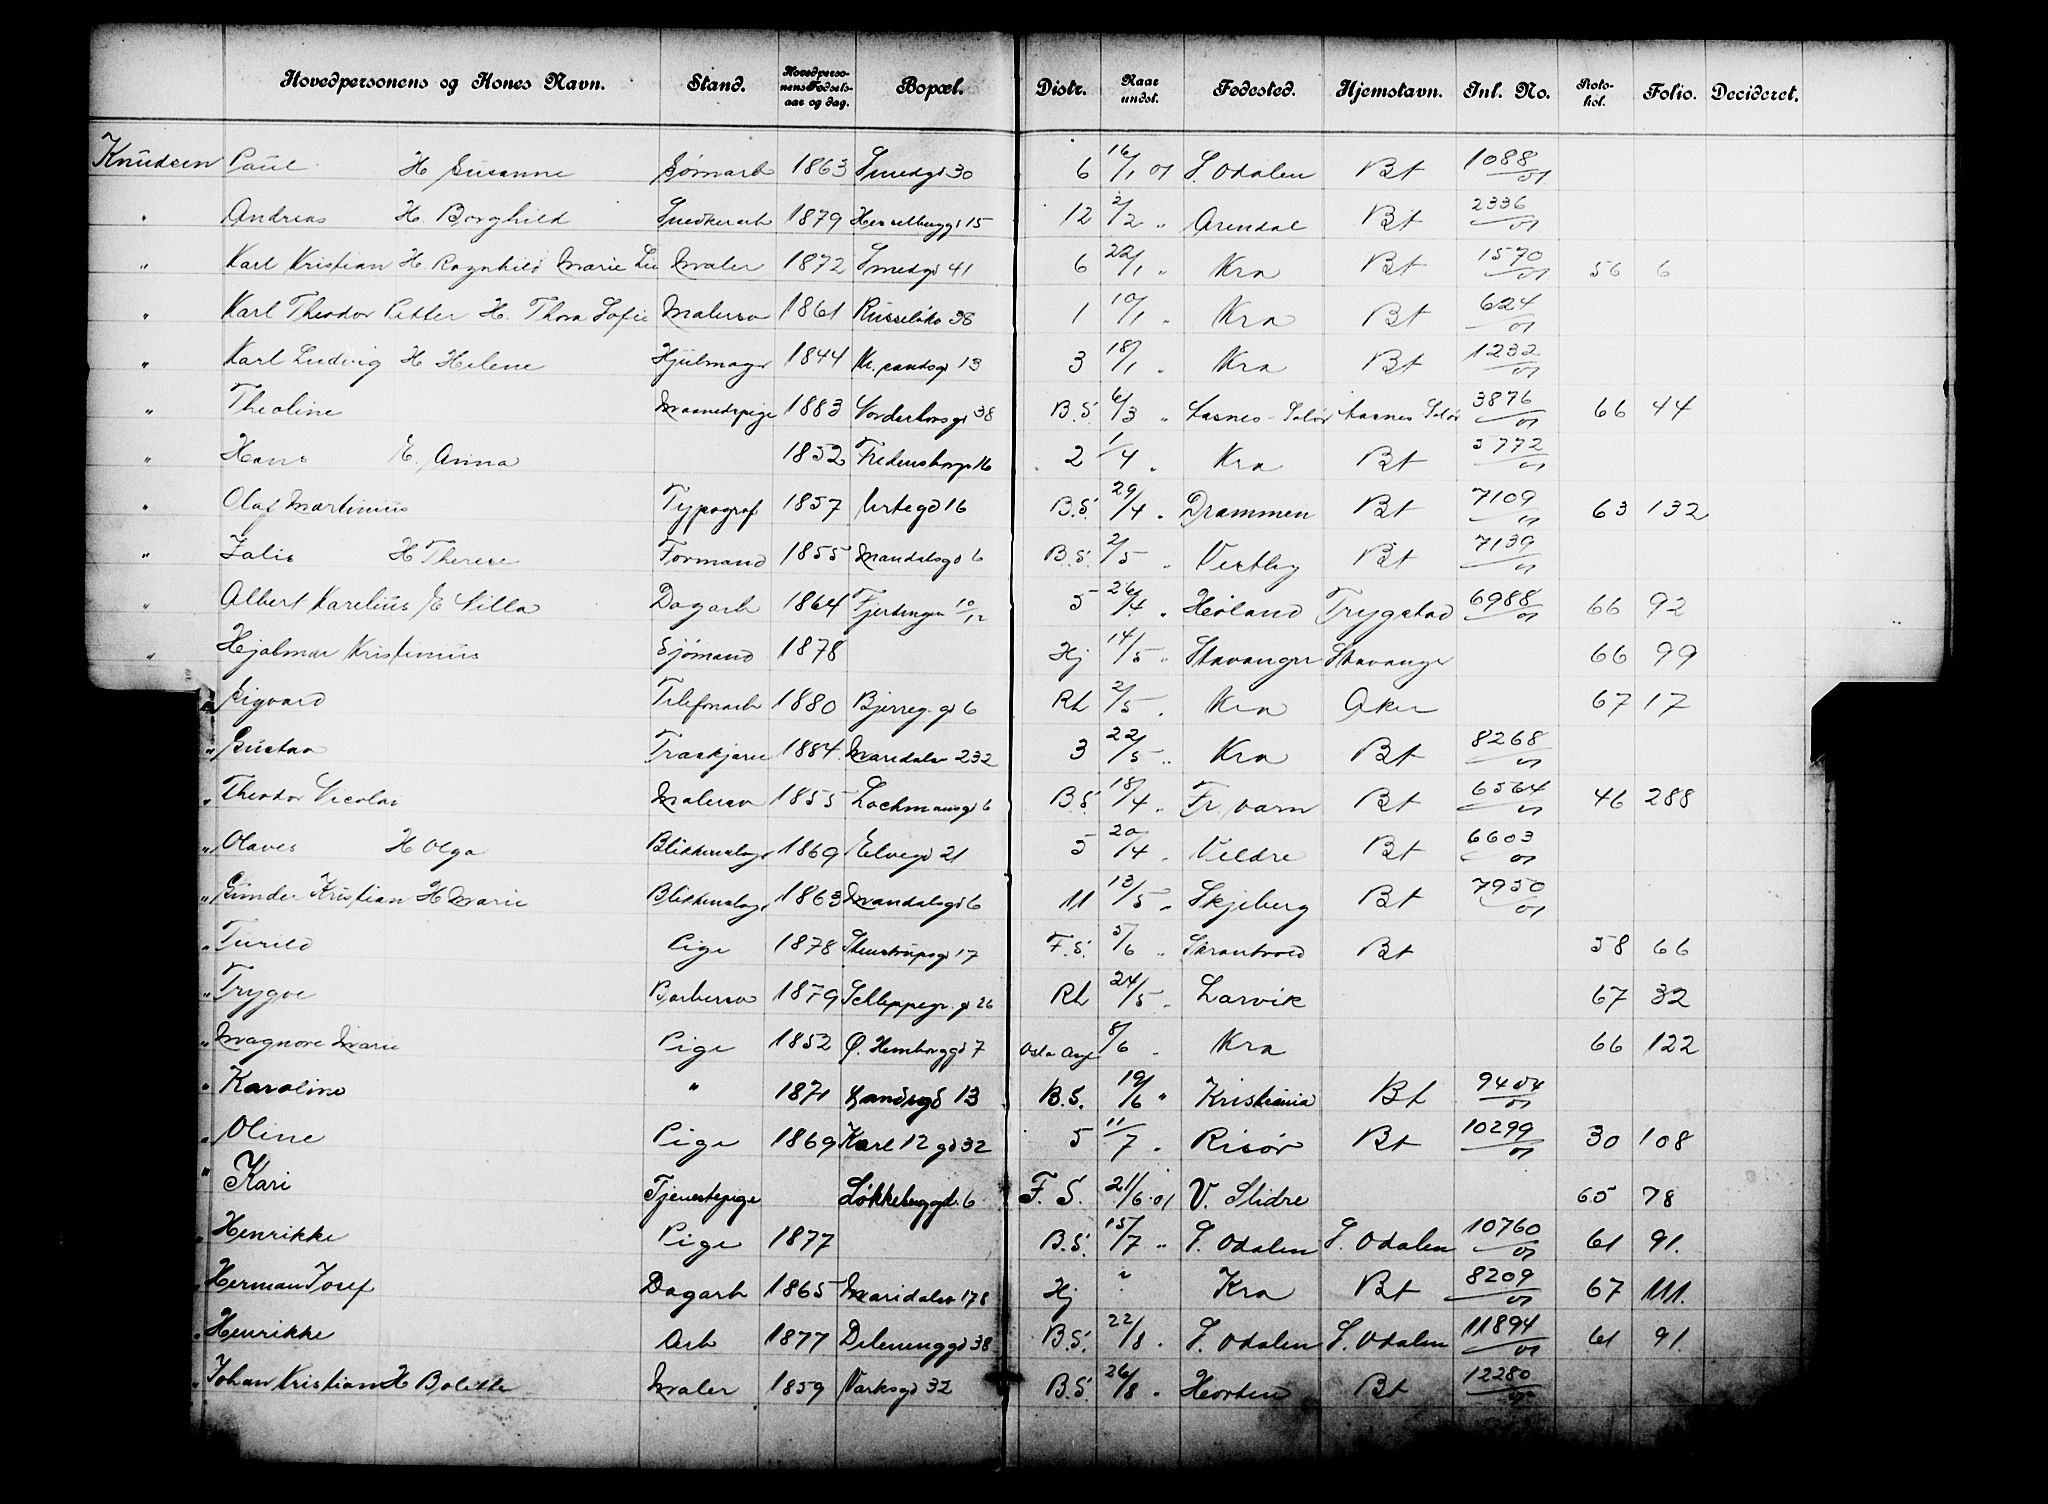 Hovedpersonens og Kones Navn. Stand. Hovedpersonens Fødselsaar og dag. Bopæl. Distr. Naar undst. Fødested. Hjemstavn. Inl. No. Protokol. Folio. Decideret.
Knudsen Paul H Susanne Sømarb 1863 Smedgd 30 6 16/1 01 S. Odalen Bt 1088/01
" Andreas H. Borghild Snedkerarb 1879 Hesselbergg 15 12 2/2 " Arendal Bt 2336/01
" Karl Kristian H. Ragnhild Marie Maler 1872 Smedgd 41 6 22/1 " Kra Bt 1570/01 56 6
" Karl Theodor Petter H. Thora Sofie Malersv 1861 Russeløkv 38 1 10/1 " Kra Bt 624/01
" Karl Ludvig H Helene Hjulmager 1844 Kr. sandsgd 13 3 18/1 " Kra Bt 1232/01
" Theoline 1883 38 B.S. 6/3 " Aasnes Solør Aasnes Solør 3876/01 66 44
" Hans E. Anna 1852 Fredensborgv 16 2 1/4 " Kra Bt 5772/01
" Olaf Martinius Typograf 1857 Urtegd 16 B.S. 29/4 " Drammen Bt 7109/01 63 132
" Julis H Therese Formand 1855 Mandalsgd 6 B.S. 2/5 " Vestby Bt 7139/01
" Albert Karelius E Milla Dagarb 1864 Fjerdingen 10/12 5 26/4 " Høland Trygstad 6988/01 66 92
" Hjalmar Kristinius Sjømand 1878 Hj 14/5 " Stavanger Stavanger 66 99
" Sigvard Telefonarb 1880 Bjerreg. gd 6 RL 2/5 " Kra Aker 67 17
" Gustav 1884 Maridalsv 232 3 22/5 " Kra Bt 8268/01
" Theodor Nicolai Malersv 1855 Lochmansgd 6 B.S. 18/4 " Fr. værn Bt 6564/01 46 288
" Olaves H Olga Blikkenslager 1869 Elvegd 21 5 20/4 " Veldre Bt 6603/01
" Gunder Kristian H Marie Blikkenslager 1863 Mandalsgd 6 11 13/5 " Skjeberg Bt 7950/01
" Turild Pige 1878 Stenstrupsgd 17 F.S. 5/6 " Bt 58 66
" Trygve Barbersv 1879 Schleppegr. gd 26 RL 24/5 " Larvik 67 32
" Magnore Marie Pige 1852 7 8/6 " Kra 66 122
" Karoline " 1871 13 B.S. 19/6 " Kristiania Bt 9404/01
" Oline Pige 1869 Karl 12 gd 32 5 11/7 " Risør Bt 10299/01 30 108
" Kari Tjenestepige Løkkeberggd. 6 F. S. 21/6 01 V. Slidre 65 78
" Henrikke Pige 1877 B.S. 15/7 " S. Odalen S. Odalen 10760/01 61 91.
" Herman Josef Dagarb 1865 Maridalsv 178 Hj " Kra Bt 8209/01 67 111.
" Henrikke Arb 1877 Delenenggd 38 B.S. 22/8 " S. Odalen S. Odalen 11894/01 61 91.
" Johan Kristian H Bolette Maler 1859 Verksgd 32 B.S. 26/8 " Horten Bt 12280/01